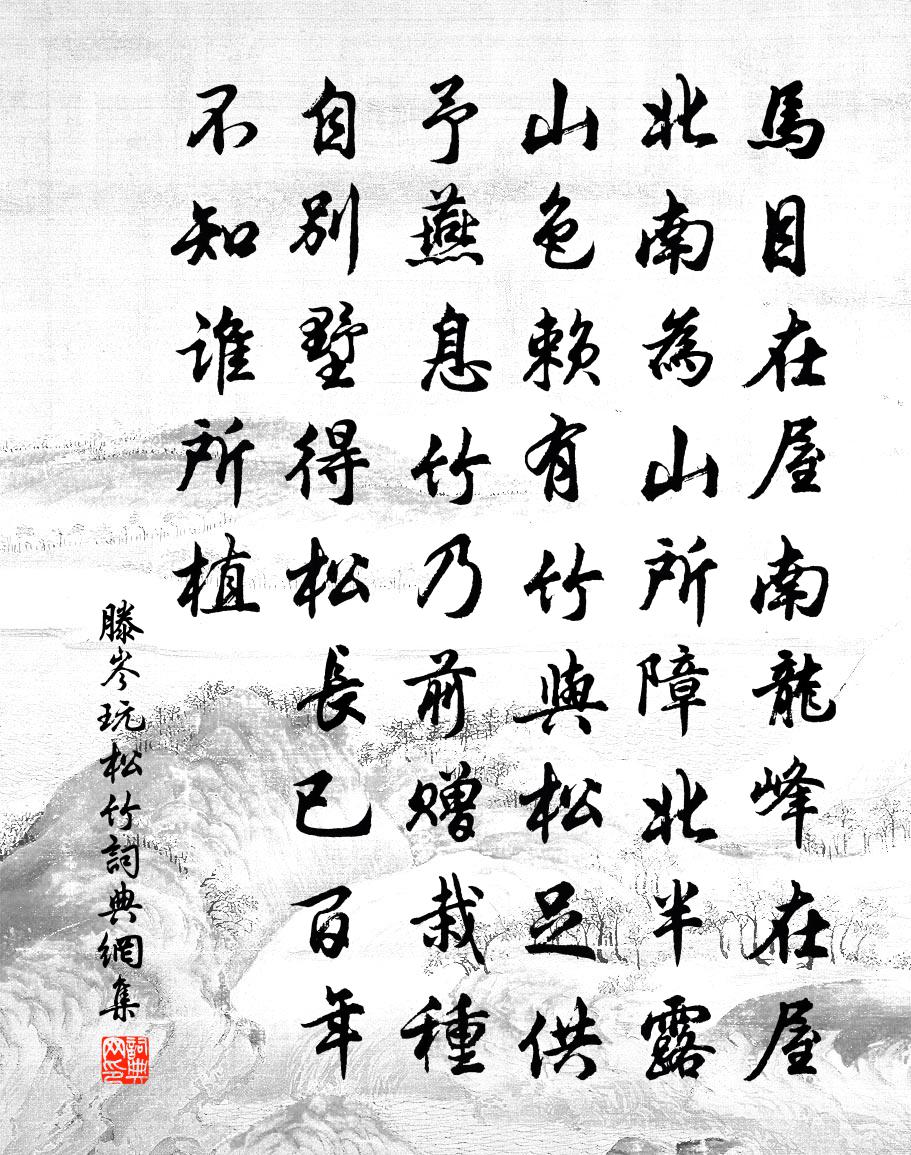 馬目在屋南龍峰在屋
北南為山所障北半露
山色賴有竹與松足供
予燕息竹乃前贈栽種
自別墅得松長已百年
不知誰所植
滕岑玩松竹詞典網集
詞典網印